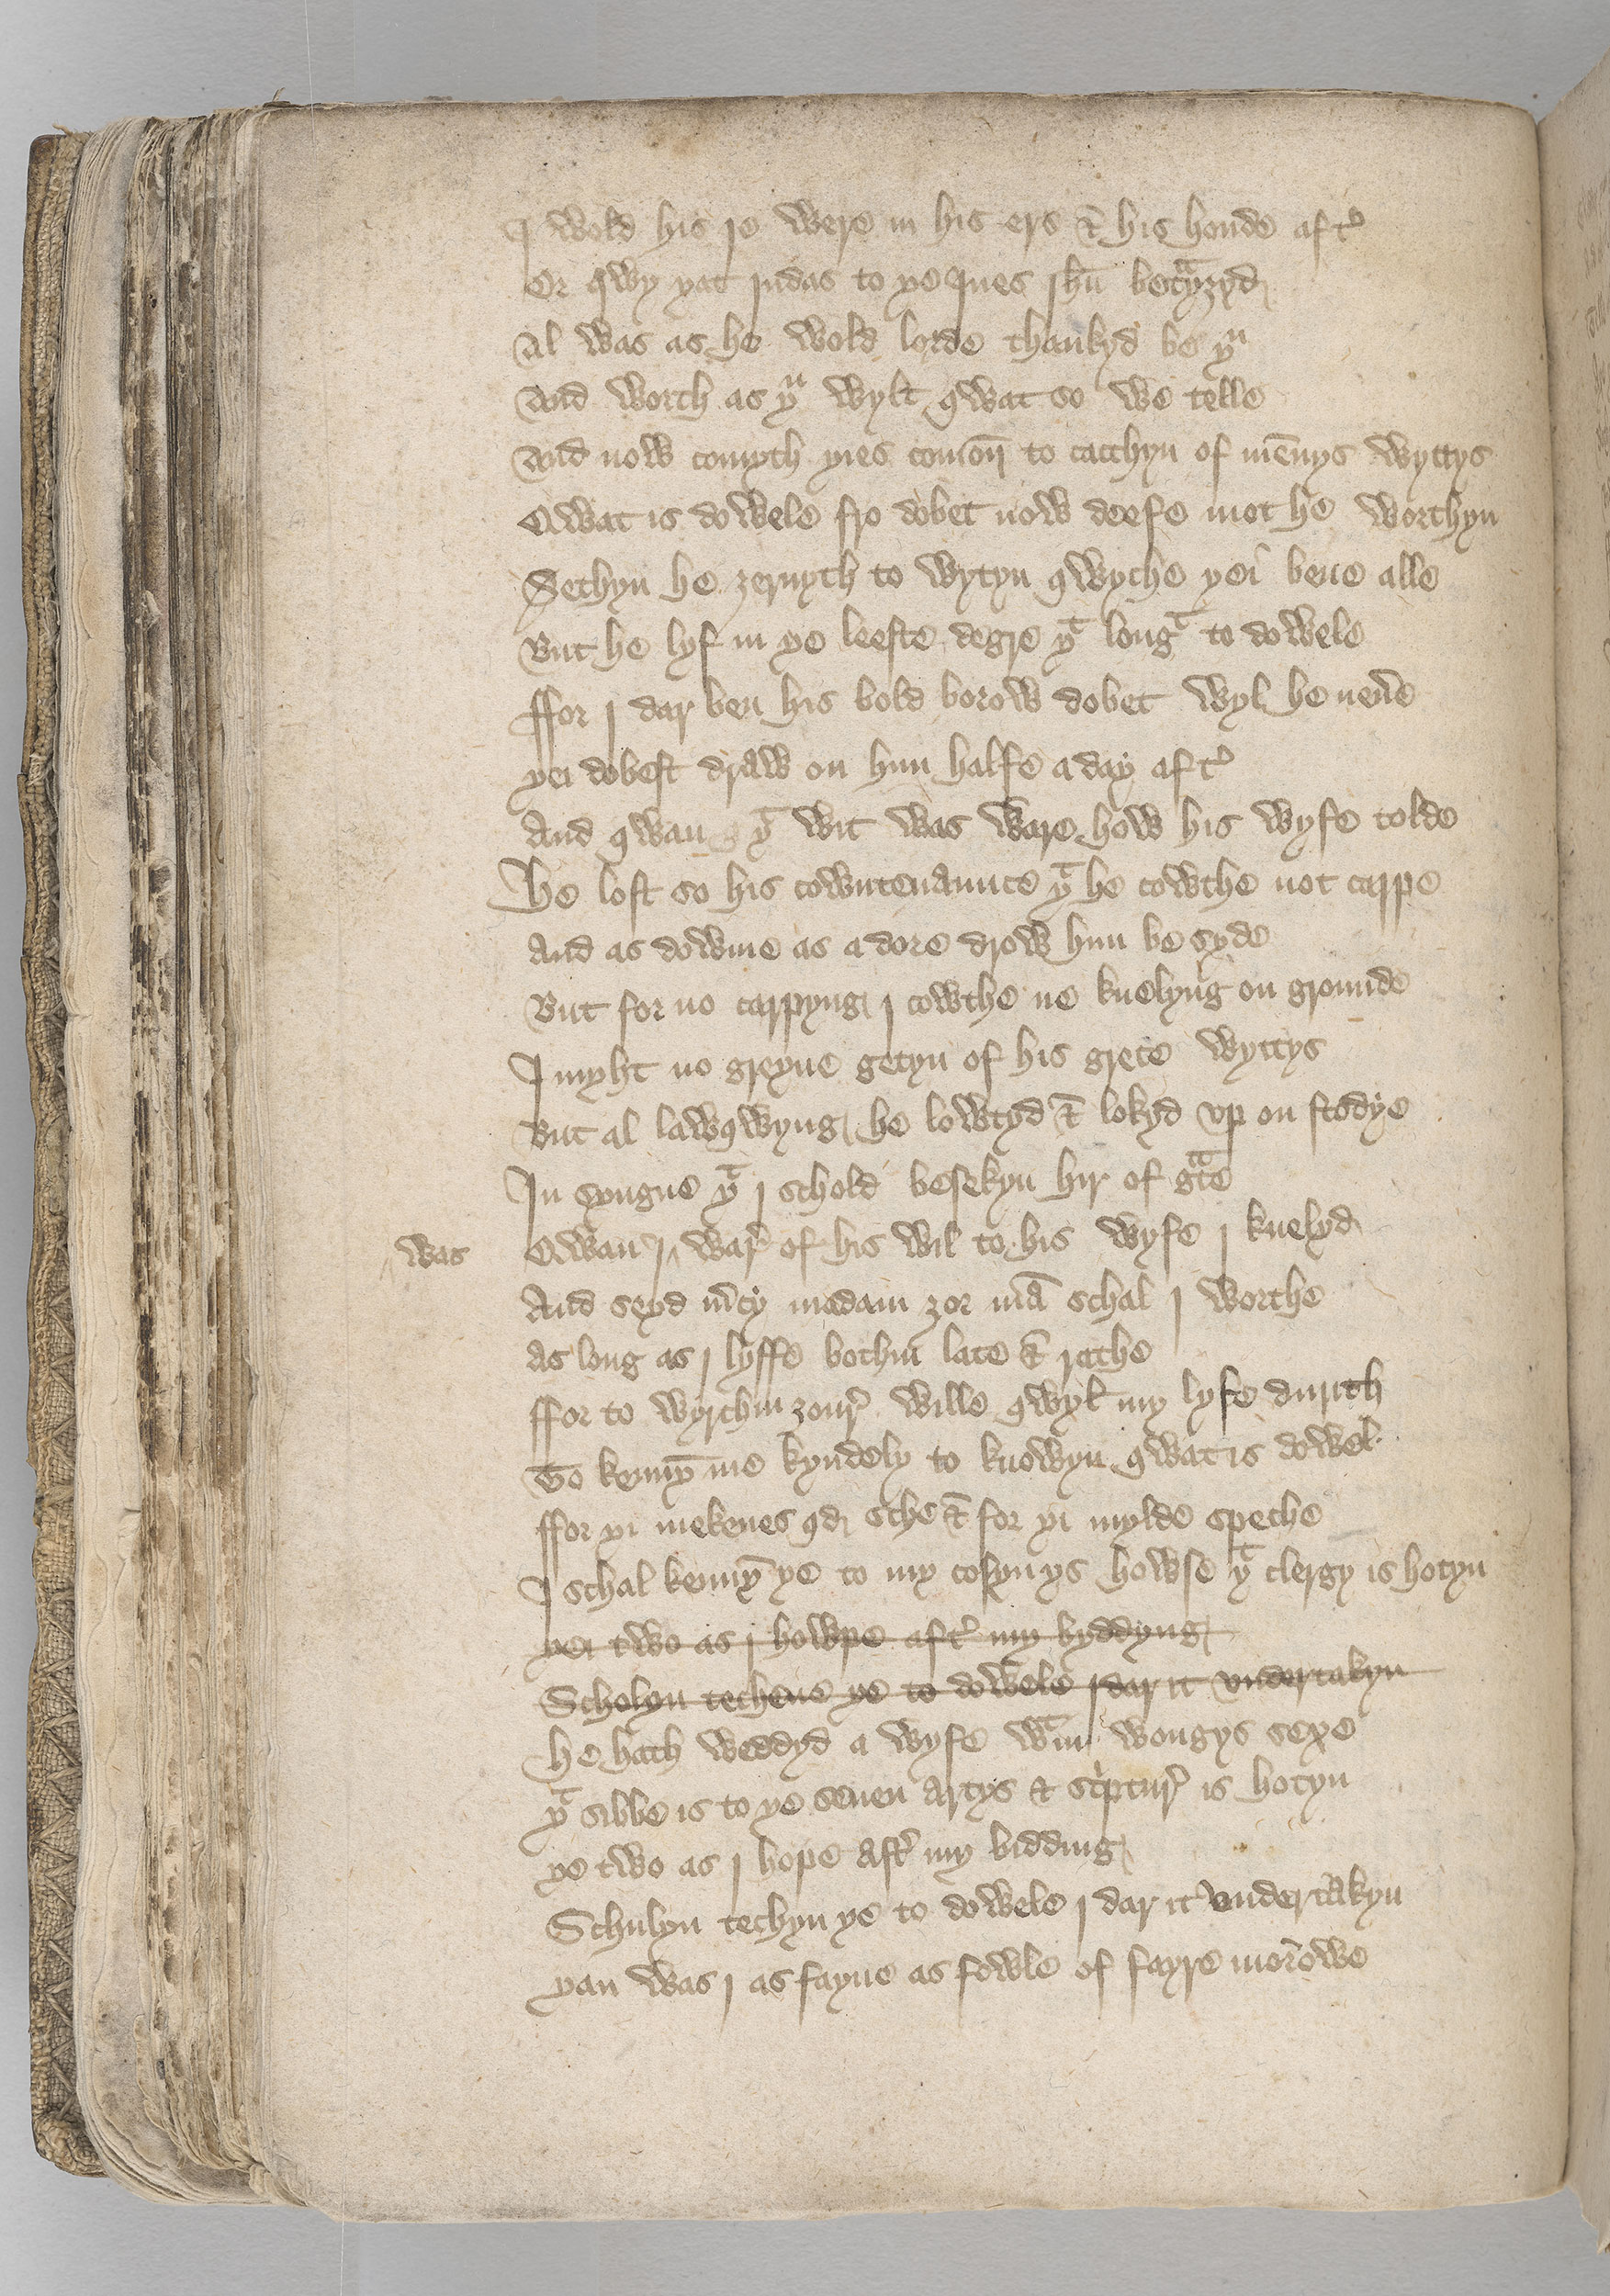 I wold his ie were in his ers & his honde aftͬ
Or qwy yat iudas to ye iues ihū betͣyzyd
Al was as he wold lorde thankyd be yͧ
And worch as yͧ wylt qwat so we telle
And now comyth yies comoū to cacchyn of mēnys wyttys
Qwat is dowele fro dobet now deefe mot he worthyn
Sethyn he zernyth to wytyn qwyche yei bene alle
But he lyf in ye leeste degre yͭ longͭ to dowele
ffor i dar ben his bold borow dobet wyl he neu̾e
yei dobest draw on hym halfe a day aftͬ
And qwan yͭ wit was ware how his wyfe tolde
He lost so his cowntenaunce yͭ he cowthe not carpe
And as dowme as a dore drow hym be syde
But for no carpyng i cowthe ne knelyng on grounde
I myht no greyne getyn of his grete wyttys
But al lawqwyng he lowtyd & lokyd vp on stodye
In syngne yͭ i schold besekyn hir of gͣce
was Qwan i ‸ war̾ of his wil to his wyfe i knelyd
And seyd m̾cy madam zor mā schal i worthe
As long as i lyffe bothin late & rathe
ffor to wyrchin zour̾ wille qwyl my lyfe durith
To kennȳ me kyndely to knowyn qwat is dowel
ffor yi mekenes qd sche & for yi mylde speche
I schal kennȳ ye to my cosynys howse yͭ clergy is hotyn
yei two as i howpe aftͬ my byddyng
Scholyn techene ye to dowele i dar it vndertakyn
he hath weddyd a wyfe wͭin wongys sexe
yͭ sibbe is to ye seuen artys & scͥptur̾ is hotyn
ye two as i hope aftͬ my bidding
Schulyn techyn ye to dowele i dar it vndertakyn
yan was i as fayne as fowle of fayre morowe